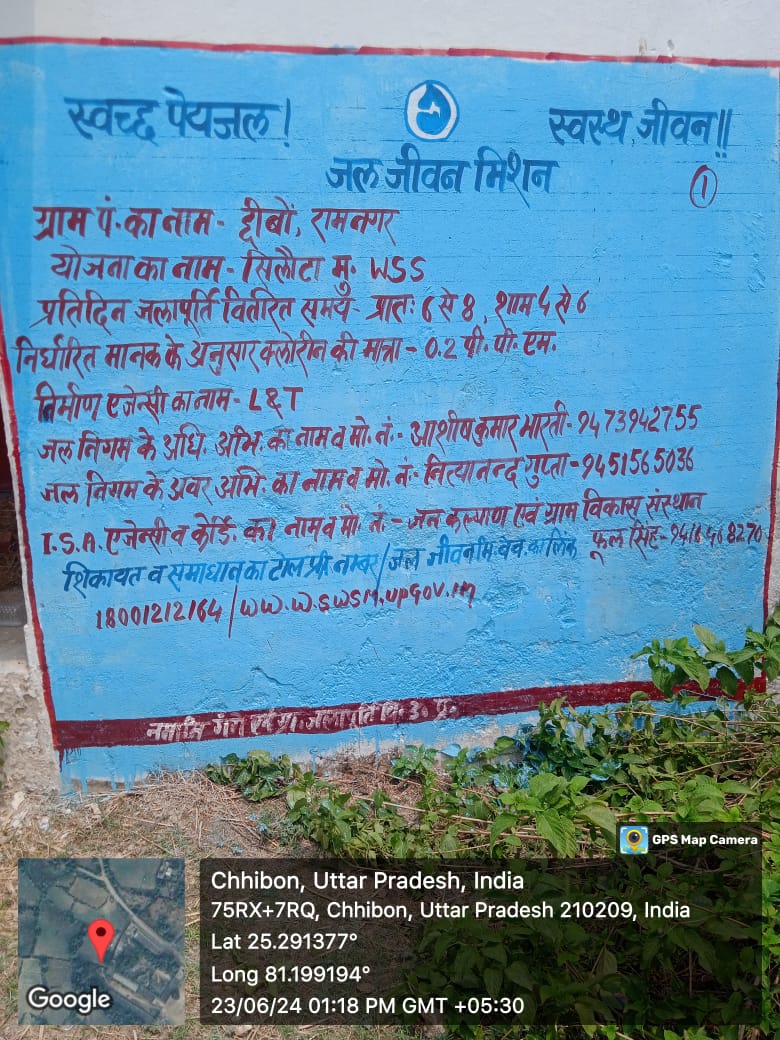 स्वच्छ पेयजल! स्वस्थ जीवन!!
जल जीवन मिशन
①
ग्राम पं. का नाम - छीबों, रामनगर
योजना का नाम - सिलौटा मु. WSS
प्रतिदिन जलापूर्ति वितरित समय - प्रातः 6 से 8, शाम 4 से 6
निर्धारित मानक के अनुसार क्लोरीन की मात्रा - 0.2 पी. पी. एम.
निर्माण एजेन्सी का नाम - L&T
जल निगम के अधि. अभि. का नाम व मो. नं. - आशीष कुमार भारती - 9473942755
जल निगम के अवर अभि. का नाम व मो. नं. - नित्यानन्द गुप्ता - 9451565036
I.S.A. एजेन्सी व कोर्डि. का नाम व मो. नं. - जन कल्याण एवं ग्राम विकास संस्थान
फूल सिंह - 9416468270
शिकायत व समाधान का टोल फ्री नम्बर / जल जीवन मि. वेव. का लिंक
18001212164 / WW.W.SWSM.UPGOV.in
नमामि गंगे एवं ग्रा. जलापूर्ति वि. उ. प्र.
GPS Map Camera
Chhibon, Uttar Pradesh, India
75RX+7RQ, Chhibon, Uttar Pradesh 210209, India
Lat 25.291377°
Long 81.199194°
23/06/24 01:18 PM GMT +05:30
Google